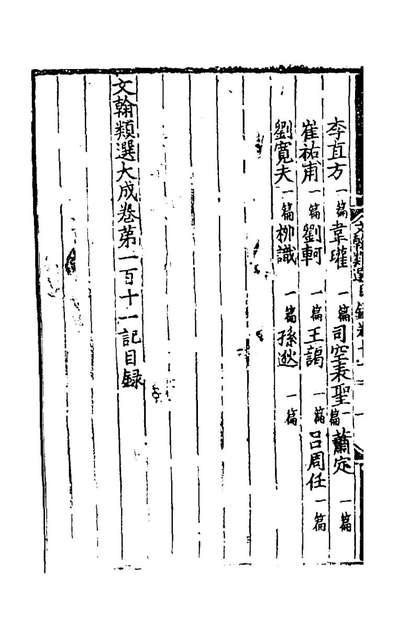 李直方一篇 韋瓘一篇 司空表聖一篇 蕭定一篇
崔祐甫一篇 劉軻一篇 王謁一篇 吕周任一篇
劉寬夫一篇 柳識一篇 孫逖一篇
文翰類選大成卷第一百十一記目録